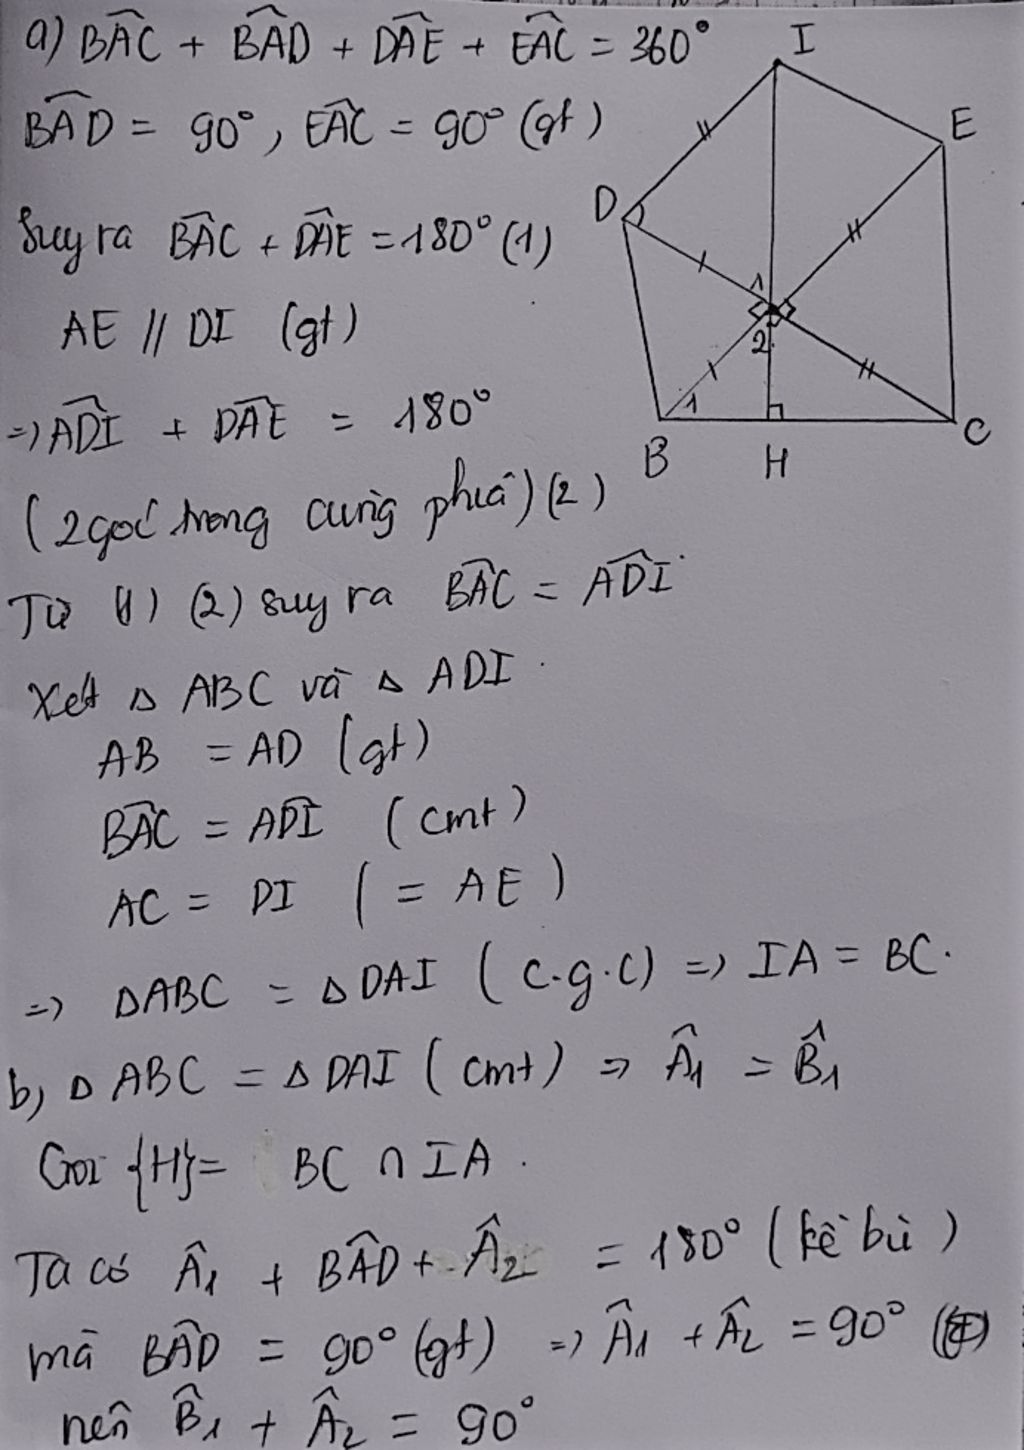 a) BÂC + BÂD + DÂE + EÂC = 360°
BÂD = 90°, EÂC = 90° (gt)
Suy ra BÂC + DÂE = 180° (1)
AE // DI (gt)
=> AD̂I + DÂE = 180°
(2 góc trong cùng phía) (2)
Từ (1) (2) suy ra BÂC = AD̂I
Xét Δ ABC và Δ ADI
AB = AD (gt)
BÂC = AD̂I (cmt)
AC = DI (= AE)
=> ΔABC = ΔDAI (c.g.c) => IA = BC.
b, Δ ABC = Δ DAI (cmt) => Â1 = B̂1
Gọi {H} = BC ∩ IA.
Ta có Â1 + BÂD + Â2 = 180° (kề bù)
mà BÂD = 90° (gt) => Â1 + Â2 = 90°
nên B̂1 + Â2 = 90°
I
E
D
1
2
1
B
H
C